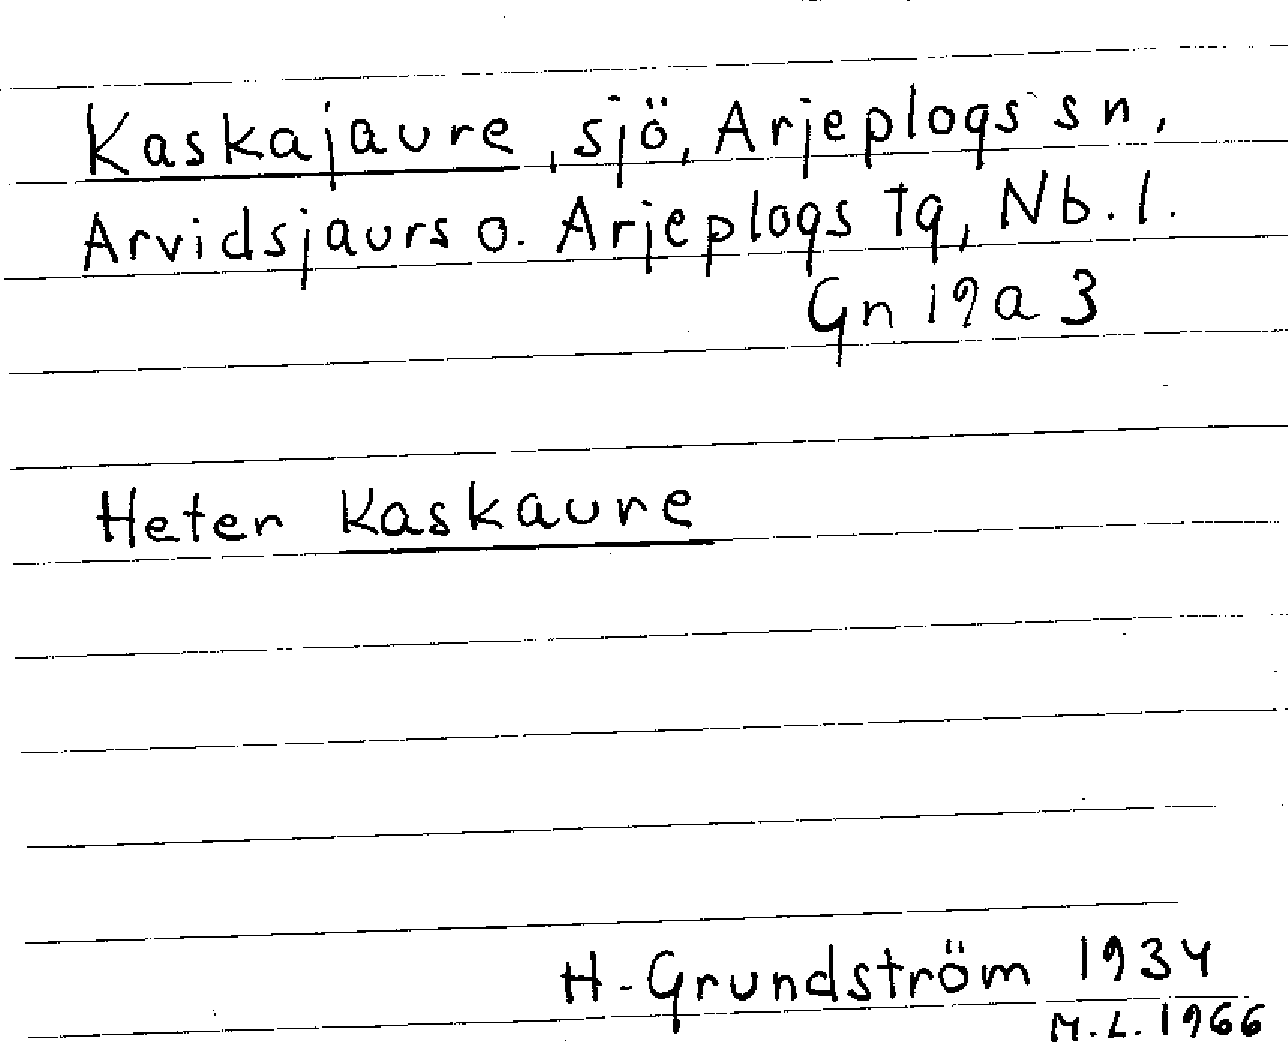 Kaskajaure, sjö, Arjeplogs sn,
Arvidsjaurs o. Arjeplogs tg, Nb. l.
Gn 19a 3
Heter Kaskaure
H. Grundström 1934
M. L. 1966